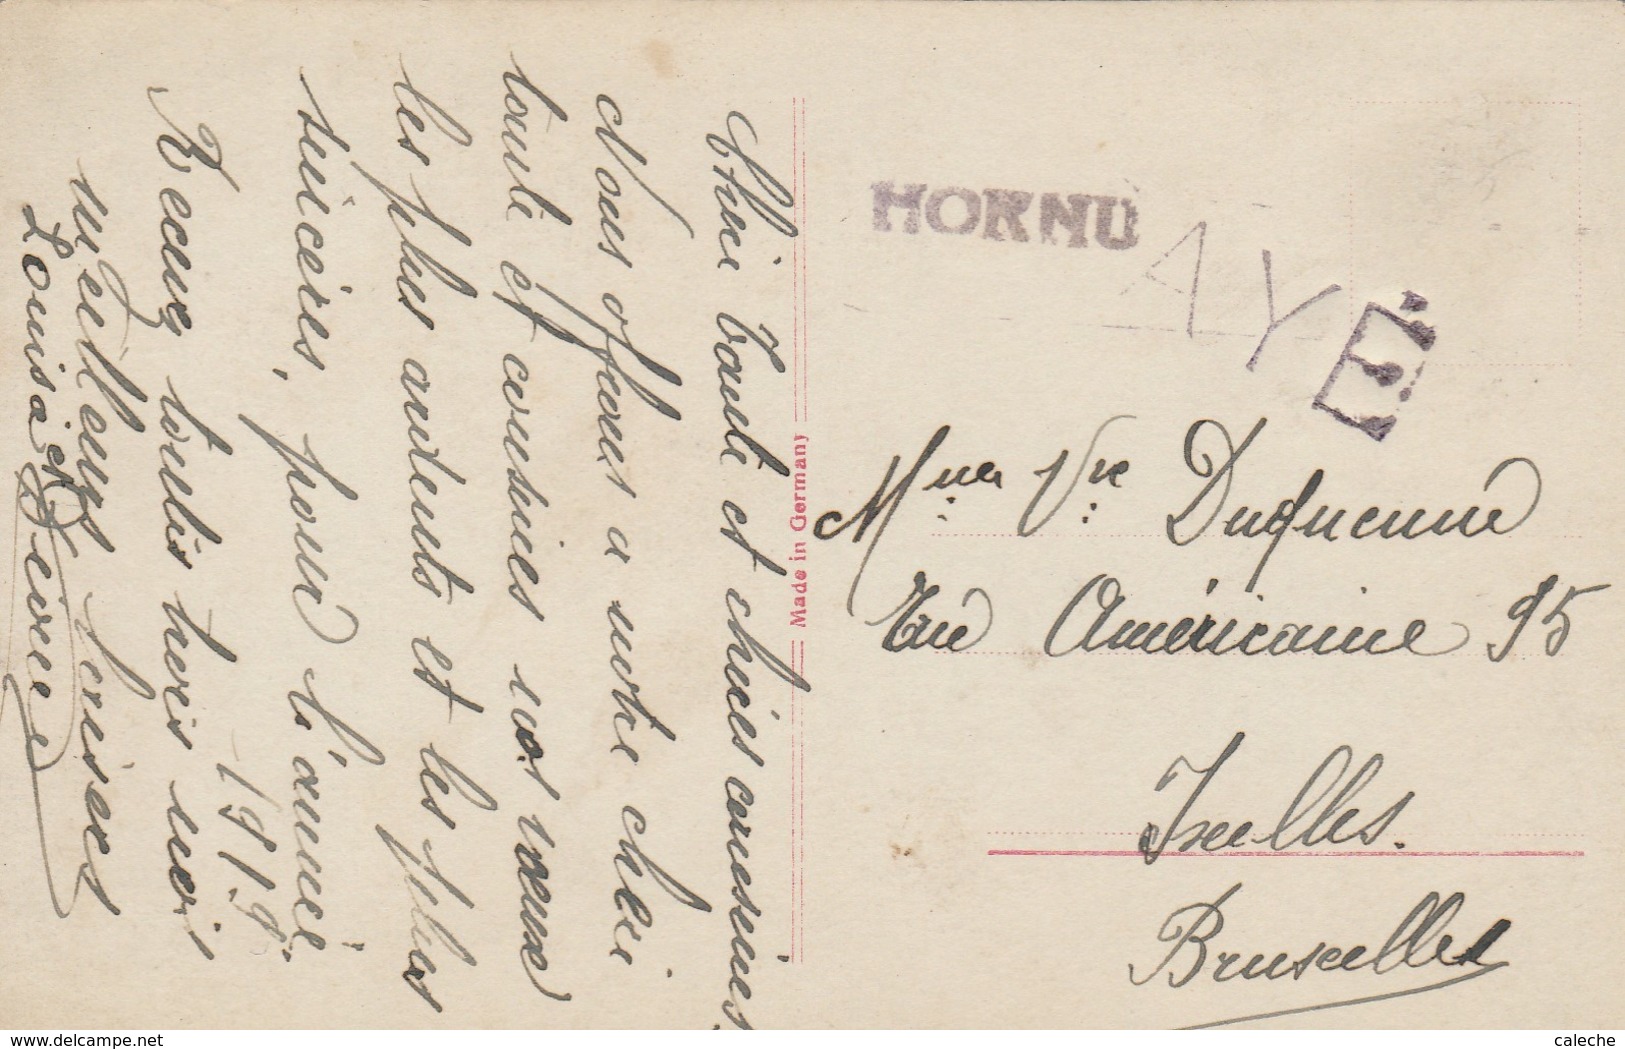 Chère Tante et chères cousines,
Nous offrons a notre chère
tante et cousines nos vœux
les plus ardents et les plus
sincères, pour l'année
1919.
Recevez toutes trois nos
meilleurs baisers
Louisa et Désirée
Made in Germany
HORNU
AYE
T
Mme Vve Duquenne
Rue Américaine 95
Ixelles.
Bruxelles
www.delcampe.net
caleche